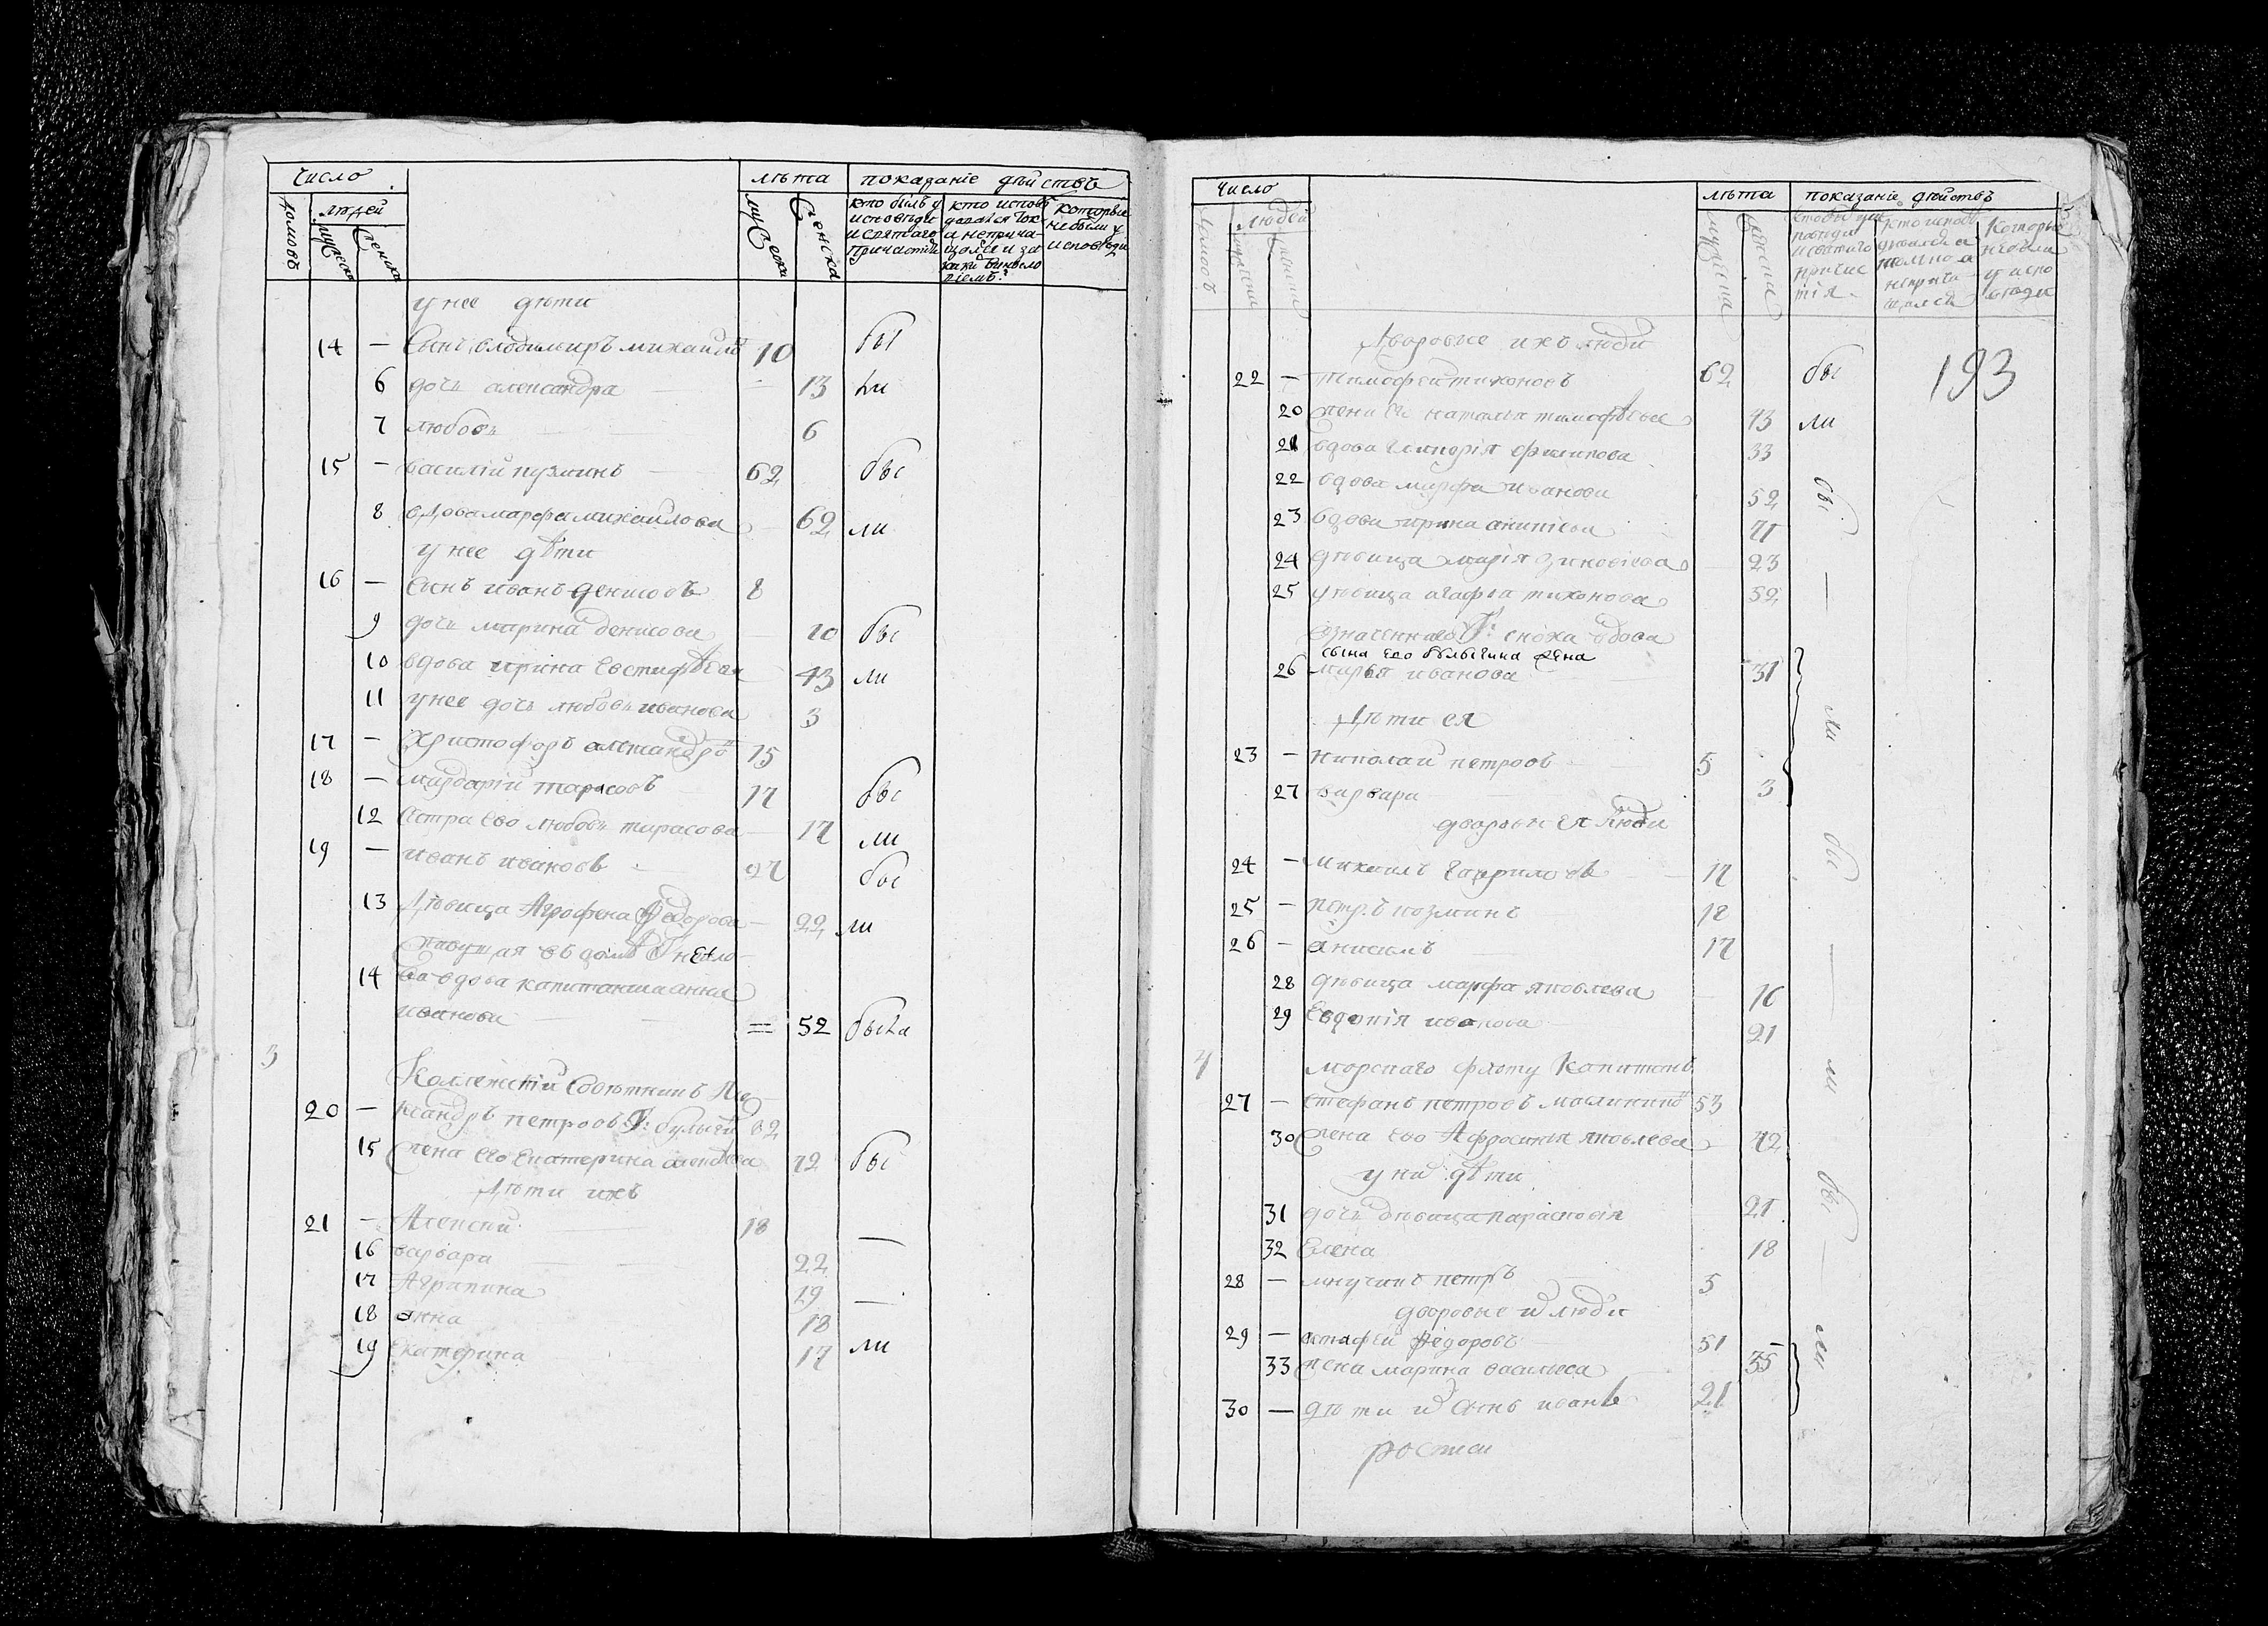 число
лѣта показаніе дѣйствъ
домовъ
людей
мужеска
женска
мужеска
женска
кто былъ у исповѣди и святаго причастія
кто исповѣдался токмо а непричащался и за какимъ винословіемъ.
которые небыли у исповѣди
у нее дѣти
14 — сынъ владимиръ михайловъ 10 бы
6 дочь александра — 13 ли
7 любовь 6
15 — василій кузминъ 62 бы
8 вдова марфа михаилова 62 ли
у нее дѣти
16 — сынъ иванъ денисовъ 8
9 дочь марина денисова 10 бы
10 вдова ирина евстифѣева 43 ли
11 у нее дочь любовь иванова 3
17 — христофоръ александровъ 15
18 — мардарій тарасовъ 17 бы
12 сестра ево любовь тарасова 17 ли
19 — иванъ ивановъ 27 бы
13 Дѣвица Агрофена Федорова — 22 ли
живущая въ домѣ
14 вдова капитанша анна
иванова = 52 была
3
Коллежскій совѣтникъ Але
20 — ксандръ петровъ Г: булыгинъ 82
15 жена его екатерина алексѣева 72 бы
Дѣти ихъ
21 — Алексѣй 18 —
16 варвара 22
17 Агрипина 19 —
18 анна 18
19 екатерина 17 ли
число
лѣта показаніе дѣйствъ
домовъ
людей
мужеска
женска
мужеска
женска
которые небыли у исповѣди
193
Дворовые ихъ люди
22 — тимофей тихоновъ 62 бы
20 жена ег наталья тимофѣева 43 ли
21 вдова гликерія филипова 33
22 вдова марфа иванова 52 бы
23 вдова ирина 71
24 дѣвица марія зиновіева 23
25 дѣвица агафья тихонова 52 —
означеннаго Г: сноха вдова
сына его булыгина жена
26 марья иванова 31
Дѣти ея ли
23 — николай петровъ 5
27 варвара 3
дворовые ея люди бы
24 — михаилъ гавриловъ 17
25 — петръ козминъ 18
26 — анисимъ 17 —
28 дѣвица марфа яковлева 16
29 евдокія иванова 21
4
морскаго флоту капитанъ ли
27 — стефанъ петровъ 53
30 жена ево Афросинья яковлева 42
у ни дѣти бы
31 дочь дѣвица парасковія 21
32 елена 18 —
28 — внучикъ петръ 5
дворовые и люди ли
29 — астафей федоровъ 51
33 жена марина васильева 35
30 — дѣти и сынъ иванъ 21
росписи